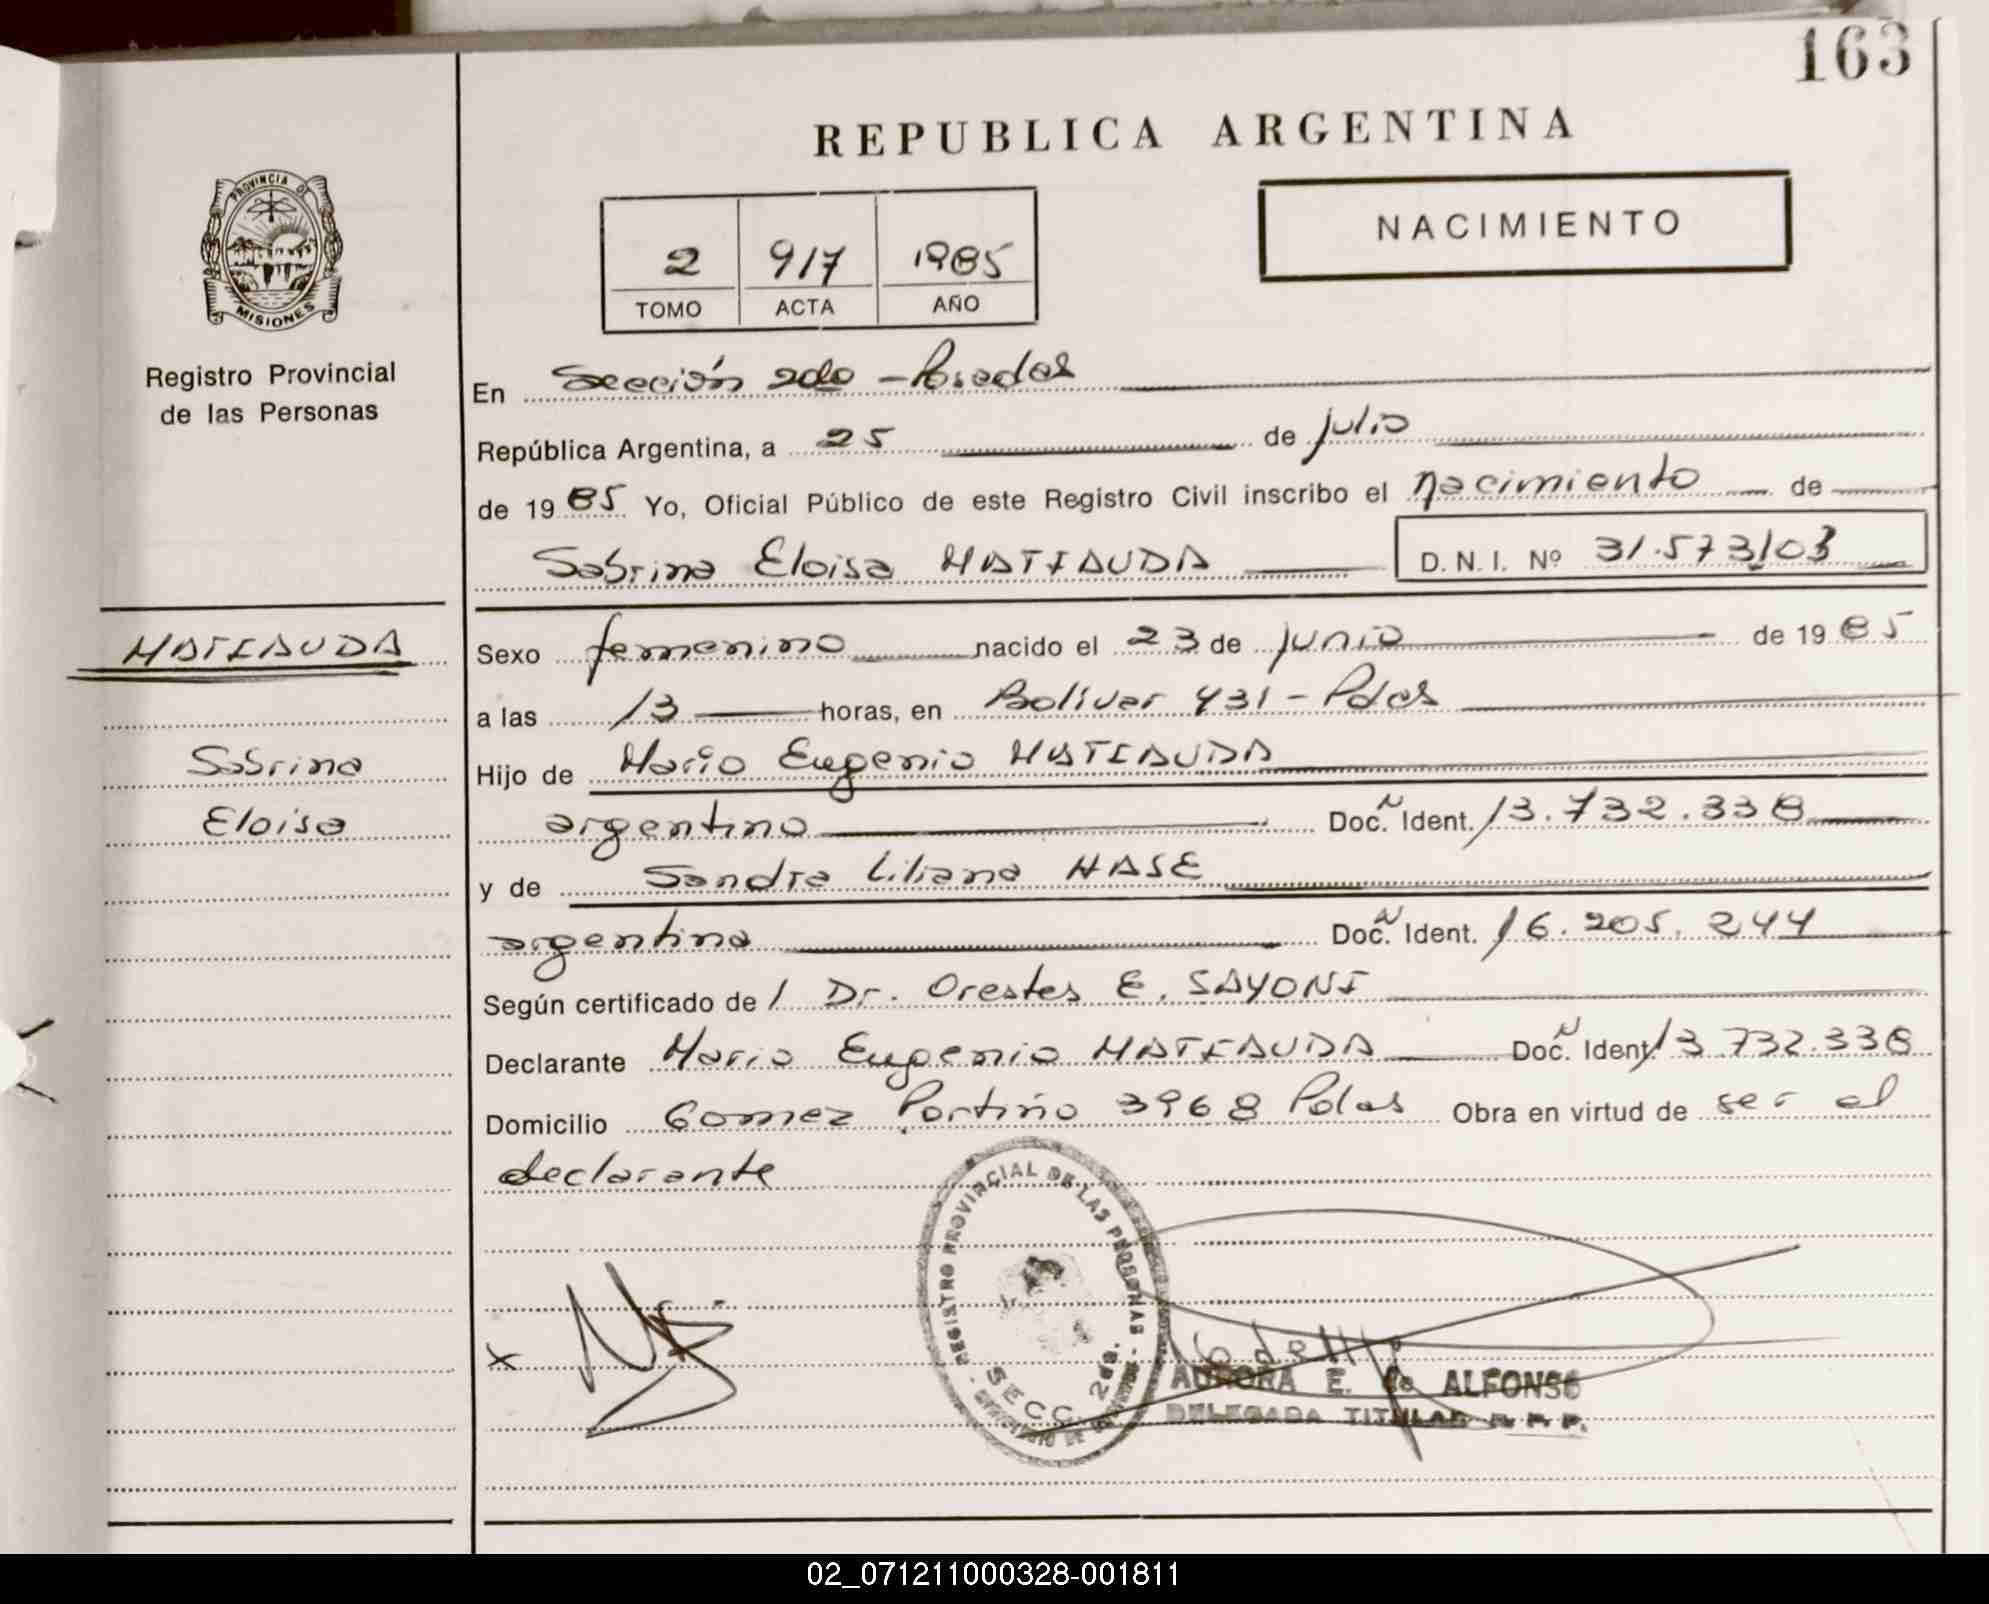 163
REPUBLICA ARGENTINA
PROVINCIA DE
MISIONES
Registro Provincial
de las Personas
NACIMIENTO
2 917 1985
TOMO ACTA AÑO
En Sección 2da - Posadas
República Argentina, a 25 de julio
de 1985 Yo, Oficial Público de este Registro Civil inscribo el nacimiento de
Sabrina Eloisa MATIAUDA D. N. I. Nº 31.573103
MATIAUDA
Sabrina
Eloisa
Sexo femenino nacido el 23 de junio de 1985
a las 13 horas, en Bolivar 431 - Pdas
Hijo de Mario Eugenio MATIAUDA
argentino Doc. N Ident. 13.732.338
y de Sandra Liliana HASE
argentina Doc. N Ident. 16.205.244
Según certificado de / Dr. Orestes E. SAYONI
Declarante Mario Eugenio MATIAUDA Doc. N Ident. 13.732.338
Domicilio Gomez Portiño 3968 Pdas Obra en virtud de ser el
declarante
REGISTRO PROVINCIAL DE LAS PERSONAS
SECC. 2da.
x
AURORA E. de ALFONSO
DELEGADA TITULAR R. P. P.
02_071211000328-001811